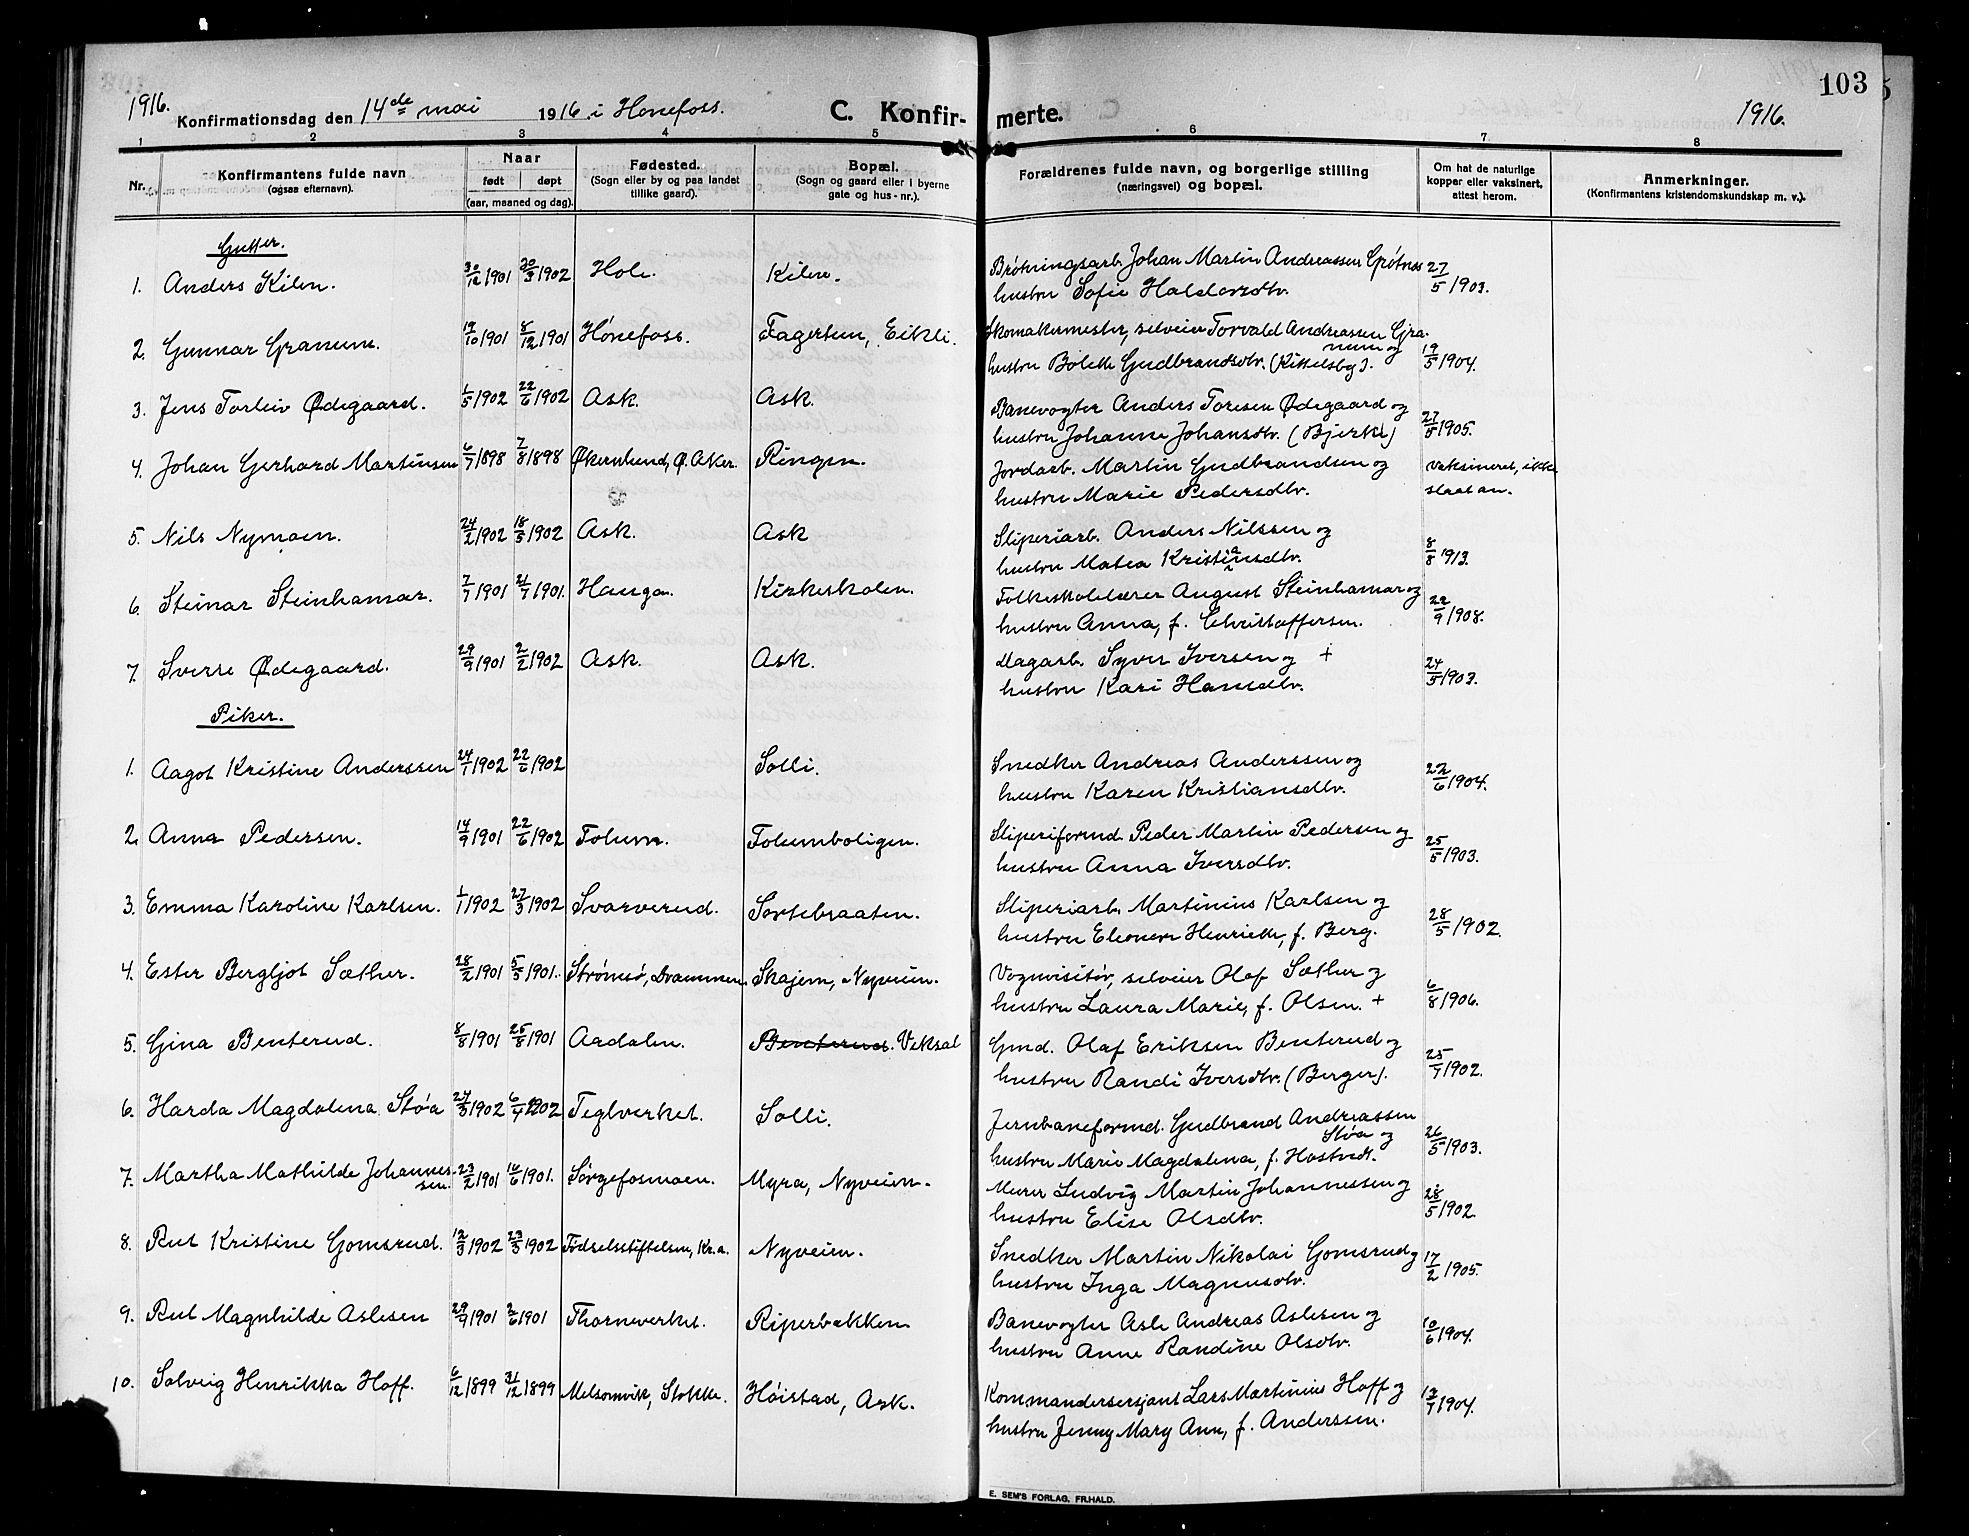 103
1916.
Konfirmationsdag den 14de mai 1916 i Hønefoss.
C. Konfirmerte.
1916.
1 2 3 4 5 6 7 8
Nr.
Konfirmantens fulde navn
(ogsaa efternavn).
Naar
født døpt
(aar, maaned og dag).
Fødested.
(Sogn eller by og paa landet
tillike gaard).
Bopæl.
(Sogn og gaard eller i byerne
gate og hus-nr.).
Forældrenes fulde navn, og borgerlige stilling
(næringsvei) og bopæl.
Om hat de naturlige
kopper eller vaksinert,
attest herom.
Anmerkninger.
(Konfirmantens kristendomskundskap m. v.).
Gutter.
1. Anders Kilen. 30/12 1901 20/3 1902 Hole. Kilen. Brøtningsarb. Johan Martin Andreassen 27/5 1903.
hustru Sofie Haldorsdtr.
2. Gunnar Granum. 19/10 1901 8/12 1901 Hönefoss. Fagertun, Eikli. Skomakermester, selveier Torvald Andreassen Gra-
num og
hustru Bolette Gudbrandsdtr. (Kittelsby). 19/5 1904.
3. Jens Torleiv Ødegaard. 1/5 1902 22/6 1902 Ask. Ask. Banevogter Anders Toresen Ødegaard og
hustru Johanne Johansdtr. (Bjerke) 27/5 1905.
4. Johan Gerhard Martinsen 6/7 1898 7/8 1898 Økernlund, Ø. Aker. Ringen. Jordarb. Martin Gudbrandsen og vaksineret, ikke
hustru Marie Pedersdtr. slaat an.
5. Nils Nymoen. 24/2 1902 18/5 1902 Ask. Ask Sliperiarb. Anders Nilssen og
hustru Matea Kristiansdtr. 8/8 1913.
6. Steinar Steinhamar. 7/7 1901 21/7 1901. Hauga. Kirkeskolen. Folkeskolelærer August Steinhamar og
hustru Anna, f. Christoffersen. 22/9 1908.
7. Sverre Ødegaard. 29/9 1901 2/2 1902 Ask. Ask. Dagarb. Syver Iversen og +
hustru Kari Hansdtr. 24/5 1903.
Piker.
1. Aagot Kristine Anderssen 24/1 1902 22/6 1902 Solli. Snedker Andreas Anderssen og
hustru Karen Kristiansdtr. 22/6 1904.
2. Anna Pedersen. 14/9 1901 22/6 1902 Folum. Folumboligen. Sliperiformd. Peder Martin Pedersen og
hustru Anna Iversdtr. 25/5 1903.
3. Emma Karoline Karlsen. 1/1 1902 27/3 1902 Svarverud. Sortebraaten. Sliperiarb. Martinius Karlsen og
hustru Eleonora Henriette, f. Berg. 28/5 1902.
4. Ester Bergljot Sæther. 28/2 1901 5/5 1901. Strømsø, Drammen. Skajem, Nyveien. Vognvisitør, selveier Olaf Sæther og
hustru Laura Marie, f. Olsen. + 6/8 1906.
5. Gina Benterud. 8/8 1901 25/8 1901 Aadalen. Benterud. Veksal Gmd. Olaf Eriksen Benterud og
hustru Randi Iversdtr. (Berger). 25/7 1902.
6. Harda Magdalena Støa 27/3 1902 6/4 1902 Teglverket. Solli. Jernbaneformd. Gudbrand Andreassen
Støa og
hustru Marie Magdalena, f. Hostvedt. 26/5 1903.
7. Martha Mathilde Johannes-
sen. 23/2 1901 16/6 1901. Sørgefosmoen. Myra, Nyveien. Murer Ludvig Martin Johannessen og
hustru Elise Olsdtr. 28/5 1902.
8. Rut Kristine Gomsrud. 12/3 1902 23/3 1902 Fødselsstiftelsen, Kr.a. Nyveien. Snedker Martin Nikolai Gomsrud og
hustru Inga Magnusdtr. 17/2 1905.
9. Rut Magnhilde Aslesen 29/9 1901 2/6 1901 Thorneverket. Riperbakken Banevogter Asle Andreas Aslesen og
hustru Anne Randine Olsdtr. 10/6 1904.
10. Solveig Henrikka Hoff. 6/12 1899 31/12 1899 Melsomvik, Stokke. Høistad, Ask. Kommandersersjant Lars Martinius Hoff og
hustru Jenny Mary Ann, f. Anderssen. 12/7 1904.
E. SEM'S FORLAG, FR.HALD.